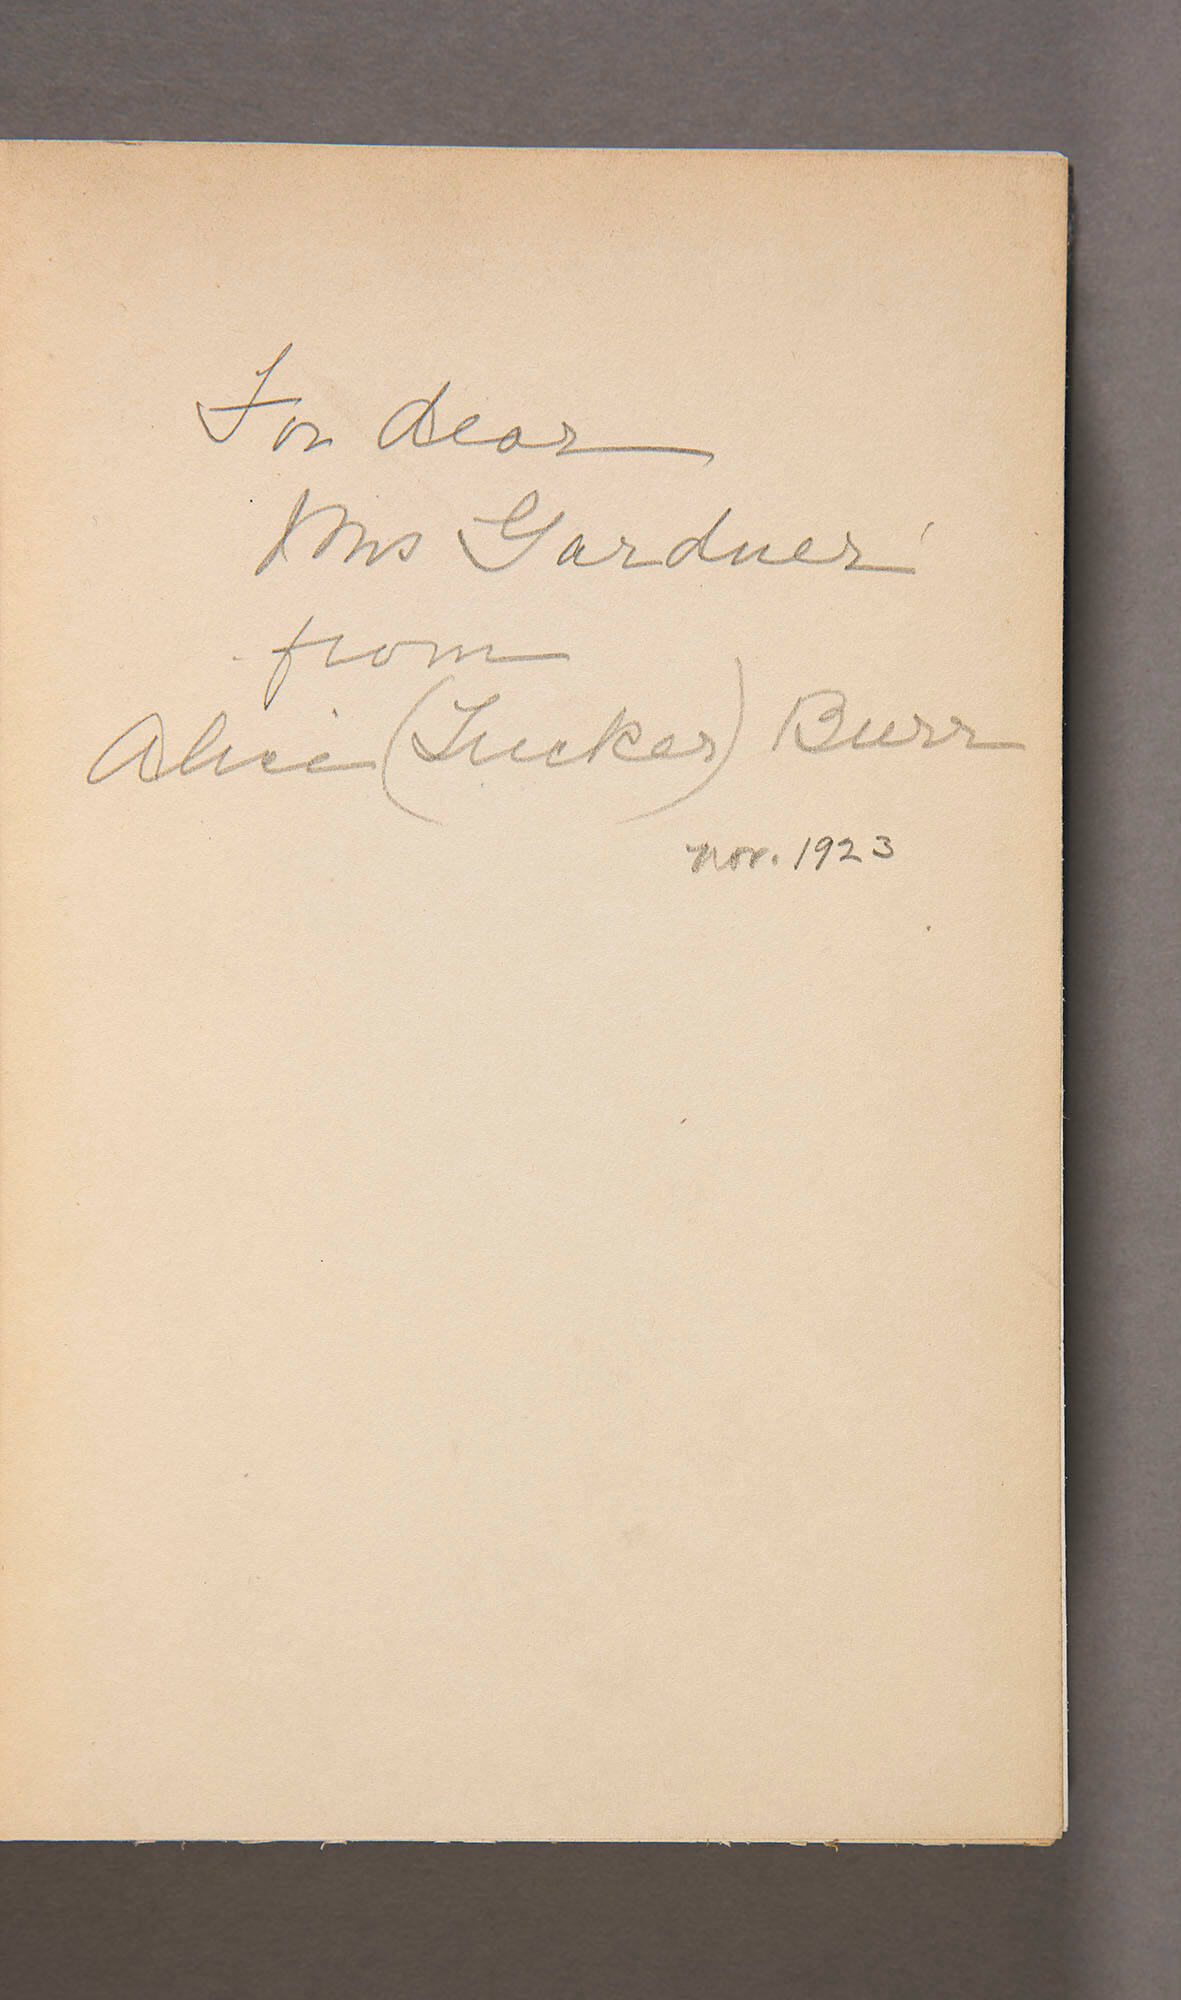 For dear
Mrs Gardner
from
Alice (Tucker) Burr
Nov. 1923